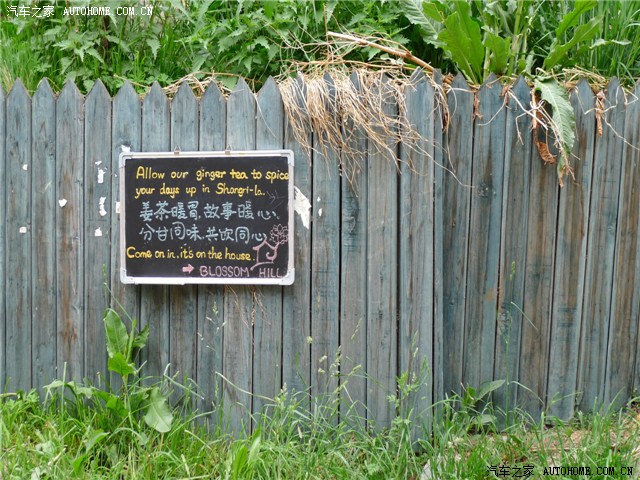 汽车之家 AUTOHOME.COM.CN
Allow our ginger tea to spice
your days up in Shangri-la.
姜茶暖胃,故事暖心.
分甘同味,共饮同心
Come on in, it's on the house.
→ BLOSSOM HILL
汽车之家 AUTOHOME.COM.CN